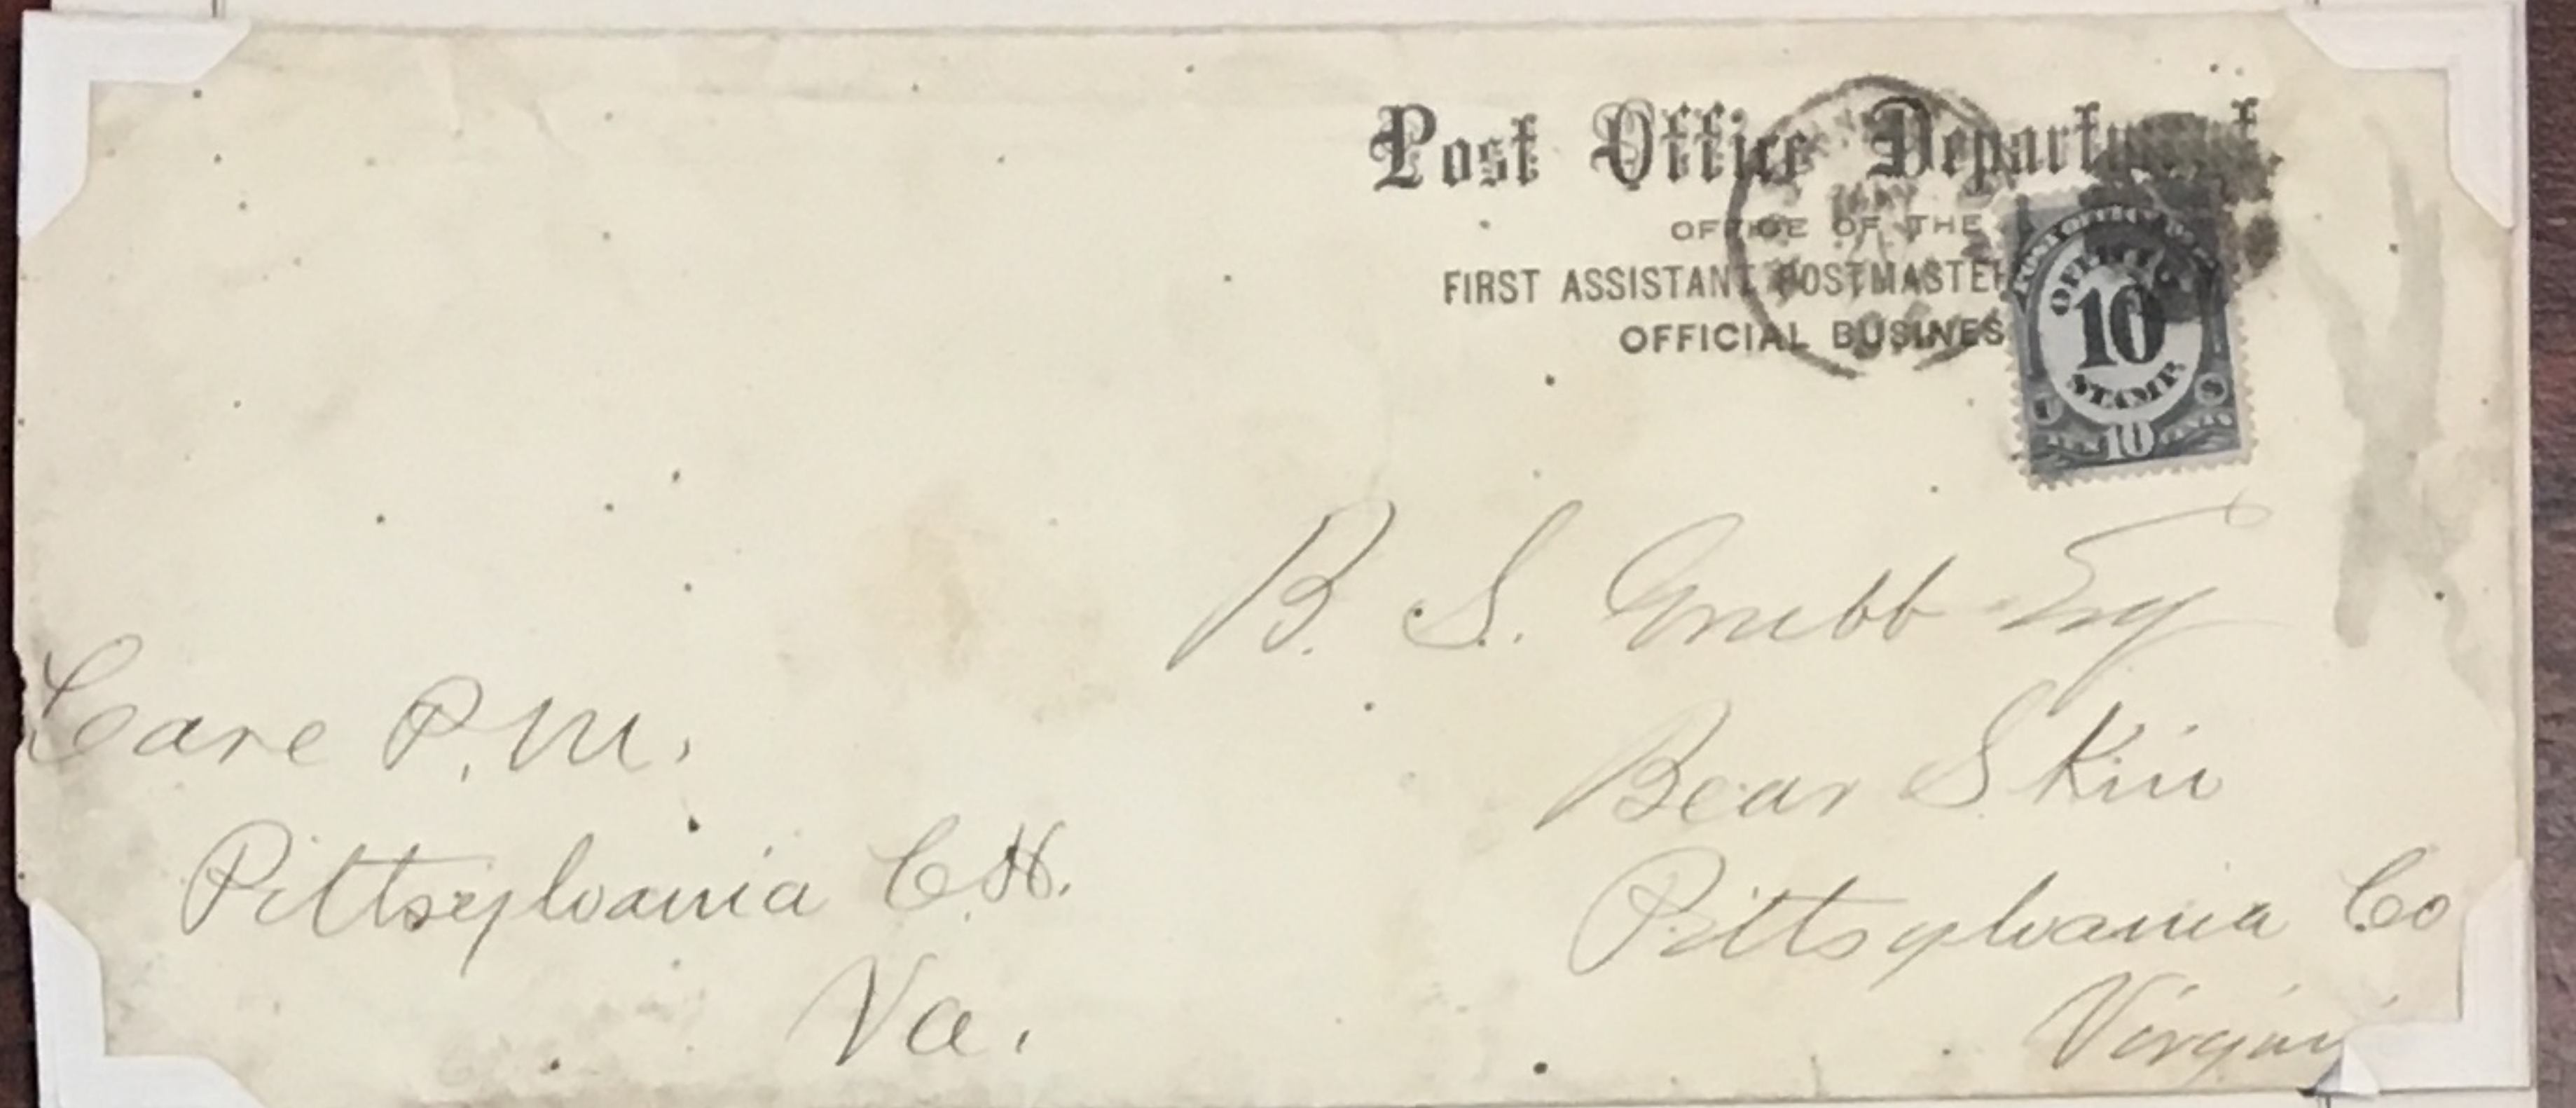 Post Office Department.
OFFICE OF THE
FIRST ASSISTANT POSTMASTER
OFFICIAL BUSINES
POST OFFICE DEPT.
OFFICIAL
10
STAMP.
U S
TEN 10 CENTS
B. S. Grubb Esq
Bear Skin
Pittsylvania Co
Virginy
Care P.M.
Pittsylvania C.H.
Va.